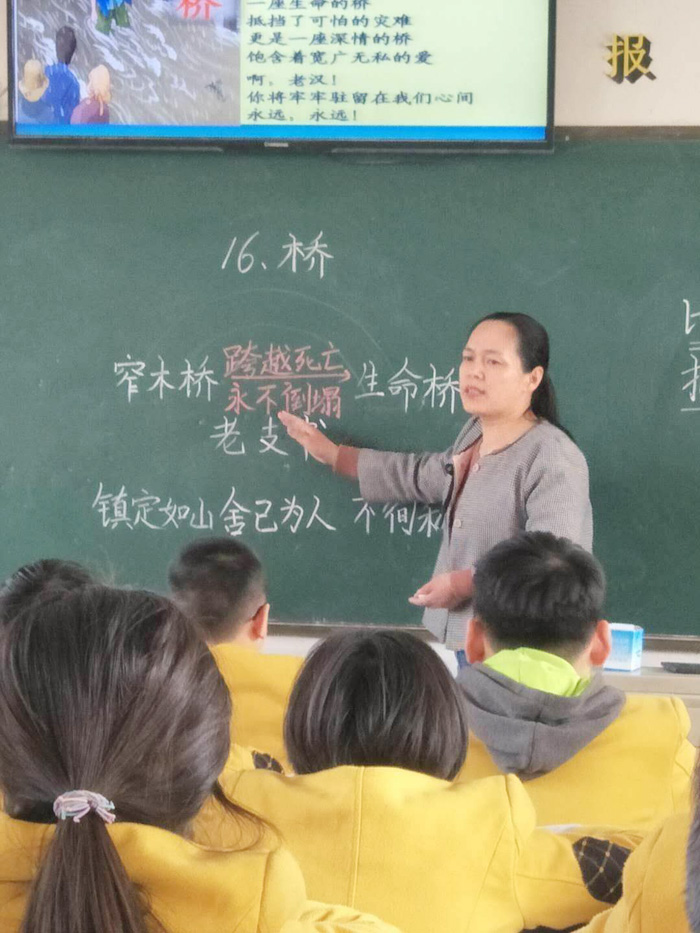 桥
一座生命的桥
抵挡了可怕的灾难
更是一座深情的桥
饱含着宽广无私的爱
啊，老汉！
你将牢牢驻留在我们心间
永远，永远！
报
16、桥
跨越死亡
窄木桥 生命桥
永不倒塌
老支书
镇定如山 舍己为人 不徇私